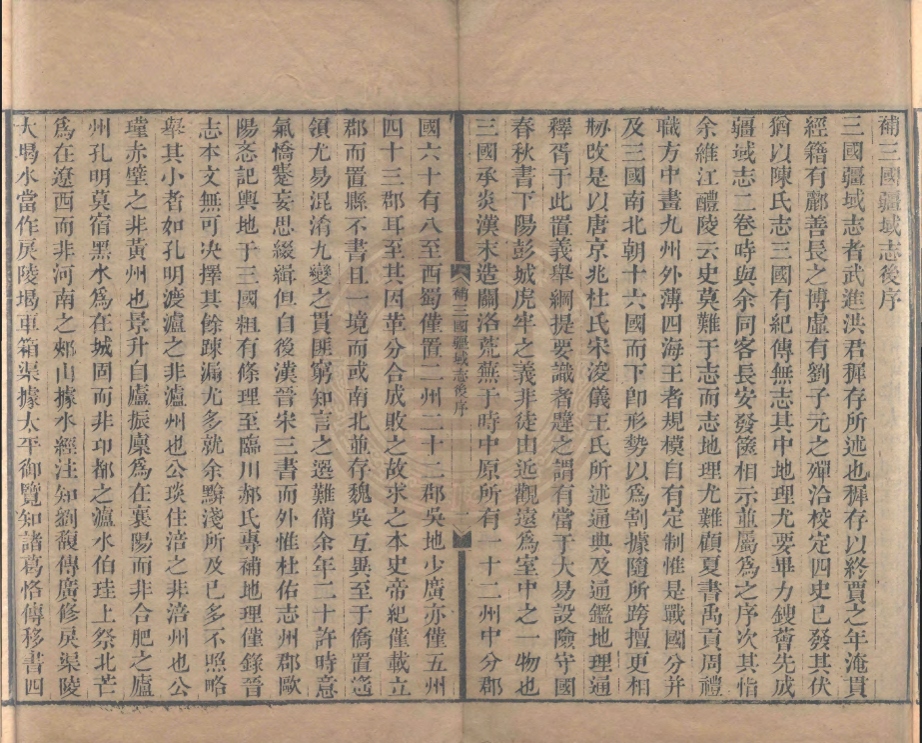 補三國疆域志後序
三國疆域志者武進洪君穉存所述也穉存以終賈之年淹貫
經籍有酈善長之博虛有劉子元之殫洽校定四史已發其伏
猶以陳氏志三國有紀傳無志其中地理尤要畢力鎪薈先成
疆域志二卷時與余同客長安發篋相示並屬為之序次其恉
余維江醴陵云史莫難于志而志地理尤難顧夏書禹貢周禮
職方中畫九州外薄四海王者規模自有定制惟是戰國分并
及三國南北朝十六國而下卽形勢以為割據隨所跨擅更相
剏改是以唐京兆杜氏宋浚儀王氏所述通典及通鑑地理通
釋胥于此置義舉綱提要識者韙之謂有當于大易設險守國
春秋書下陽彭城虎牢之義非徒由近觀遠為室中之一物也
三國承炎漢末造關洛荒蕪于時中原所有一十二州中分郡
補三國疆域志後序
一
國六十有八至西蜀僅置二州二十二郡吳地少廣亦僅五州
四十三郡耳至其因革分合成敗之故求之本史帝紀僅載立
郡而置縣不書且一境而或南北並存魏吳互異至于僑置遙
領尤易混淆九變之貫匪窮知言之選難備余年二十許時意
氣憍蹇妄思綴緝但自後漢晉宋三書而外惟杜佑志州郡歐
陽忞記輿地于三國粗有條理至臨川郝氏專補地理僅錄晉
志本文無可決擇其餘踈漏尤多就余黲淺所及已多不照略
舉其小者如孔明渡瀘之非瀘州也公琰住涪之非涪州也公
瑾赤壁之非黃州也景升自廬振廩為在襄陽而非合肥之廬
州孔明莫宿黑水為在城固而非卭都之瀘水伯珪上祭北芒
為在遼西而非河南之郟山據水經注知劉馥傳廣修戾渠陵
大堨水當作戾陵堨車箱渠據太平御覽知諸葛恪傳移書四